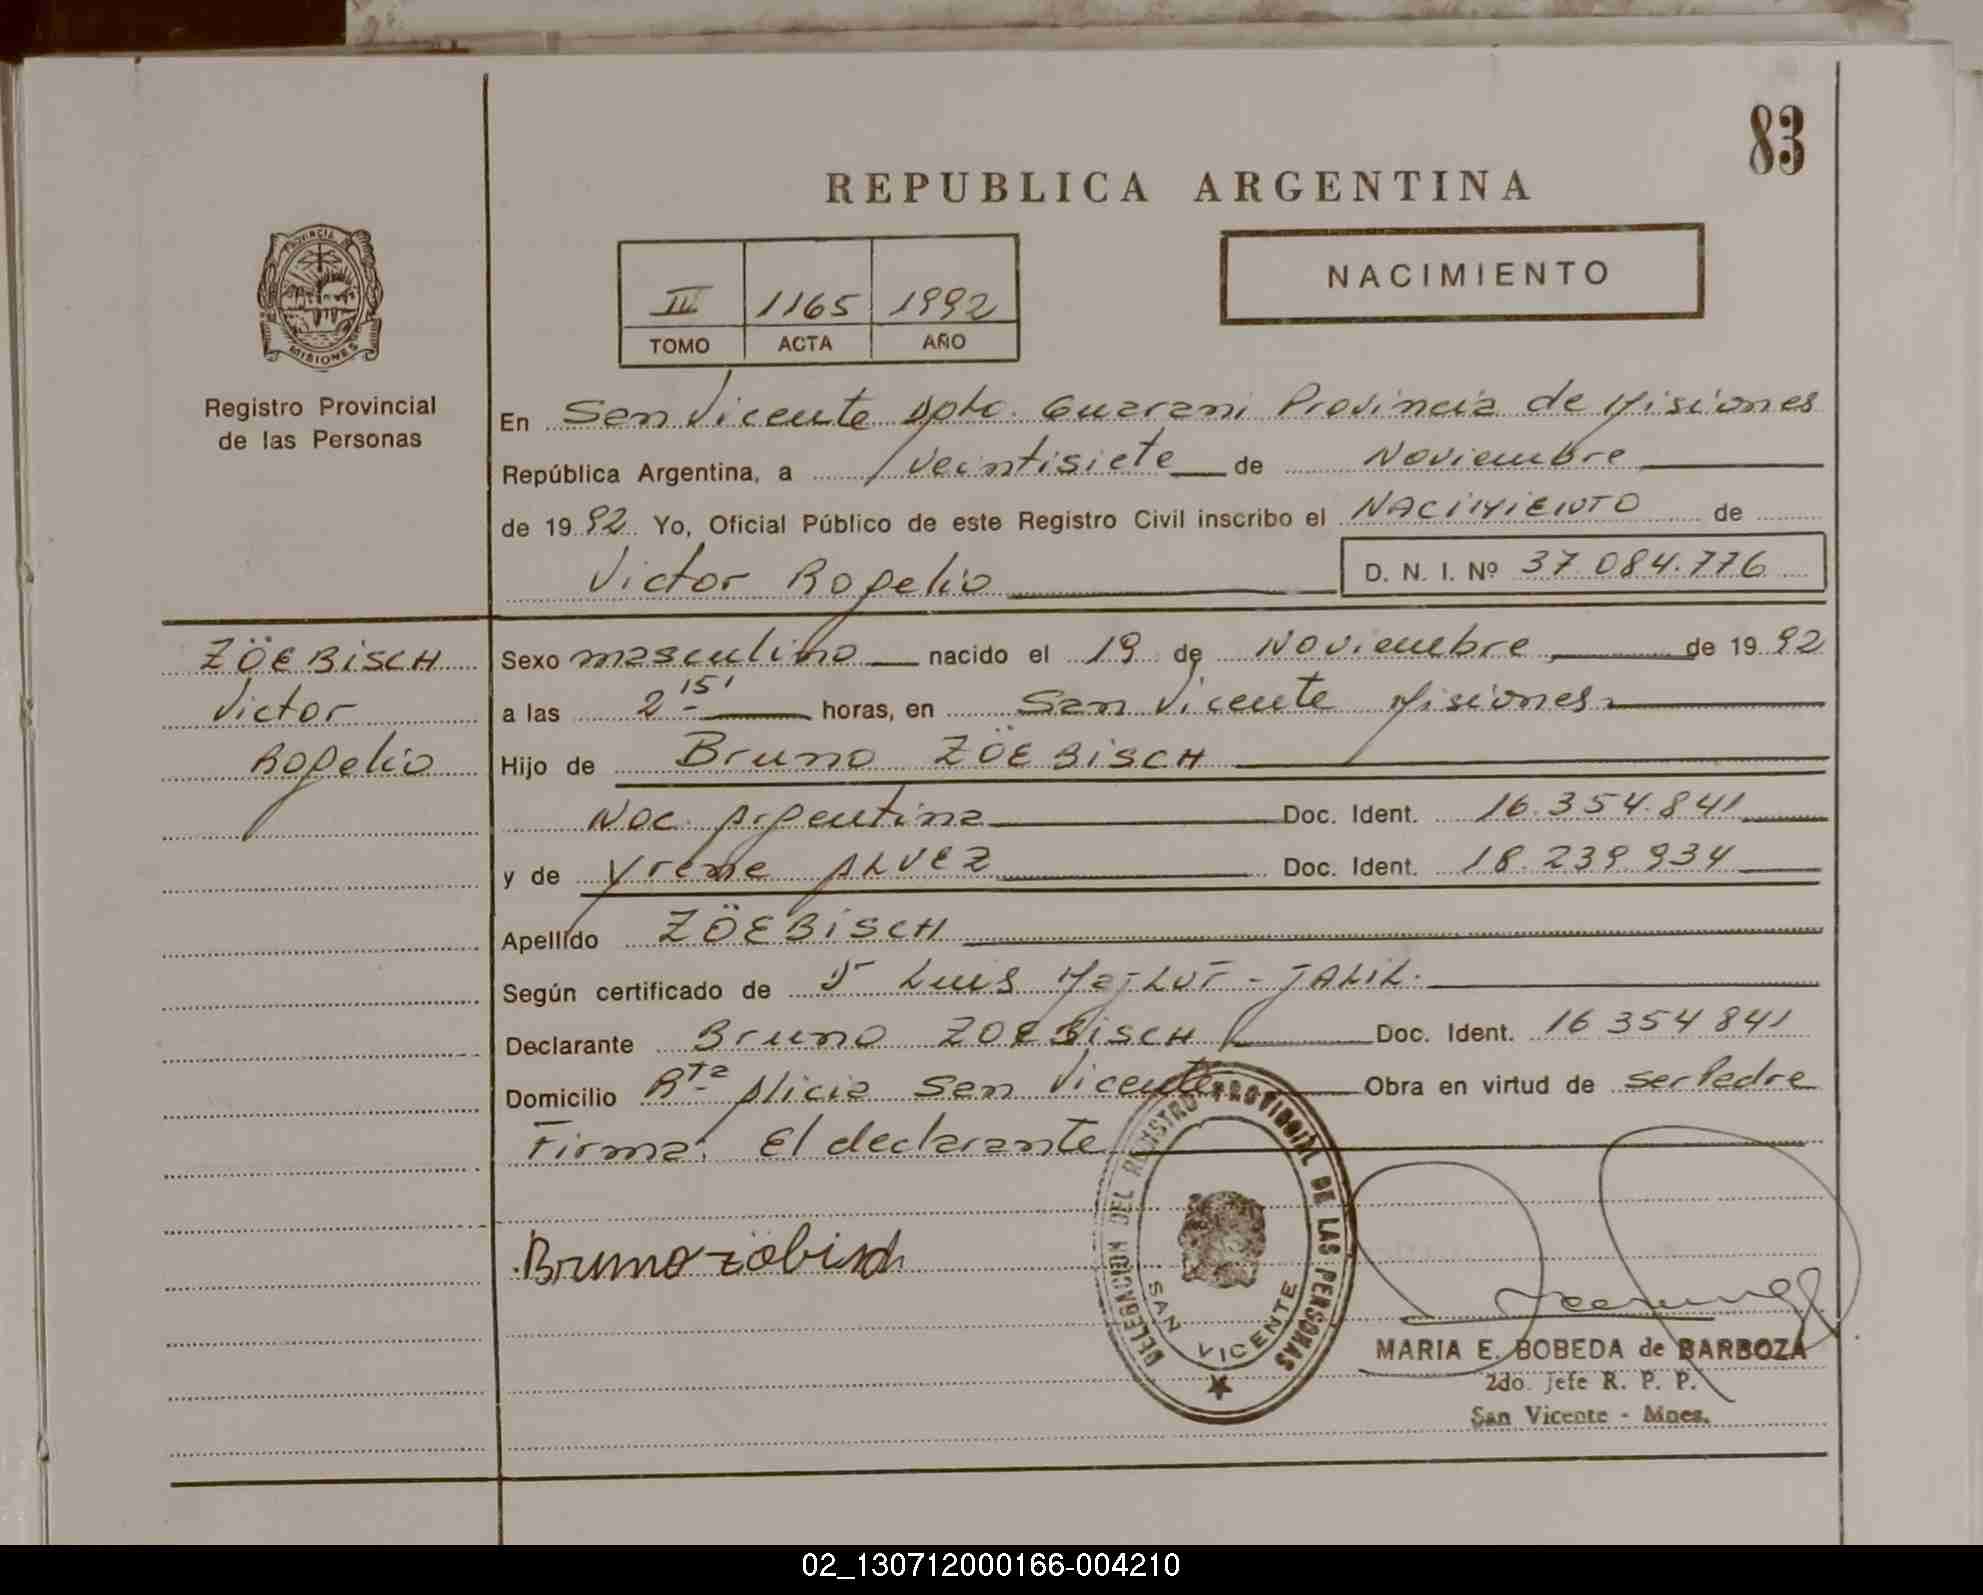 83
REPUBLICA ARGENTINA
NACIMIENTO
III 1165 1992
TOMO ACTA AÑO
PROVINCIA DE MISIONES
Registro Provincial
de las Personas
En San Vicente Dpto. Guarani Provincia de Misiones
República Argentina, a veintisiete de Noviembre
de 1992 Yo, Oficial Público de este Registro Civil inscribo el NACIMIENTO de
Victor Rogelio D. N. I. Nº 37.084.776
ZÖEBISCH
Victor
Rogelio
Sexo masculino nacido el 19 de Noviembre de 1992
a las 2 15' horas, en San Vicente Misiones
Hijo de Bruno ZÖEBISCH
Nac. Argentina Doc. Ident. 16.354.841
y de Yrene ALVEZ Doc. Ident. 18.239.934
Apellido ZÖEBISCH
Según certificado de Dr Luis JALIL
Declarante Bruno ZOEBISCH Doc. Ident. 16 354 841
Domicilio Rta Alicia San Vicente Obra en virtud de ser Padre
Firma: El declarante
Bruno zöbisch
DELEGACION DEL REGISTRO PROVINCIAL DE LAS PERSONAS
SAN VICENTE
MARIA E. BOBEDA de BARBOZA
2do. Jefe R. P. P.
San Vicente - Mnes.
02_130712000166-004210